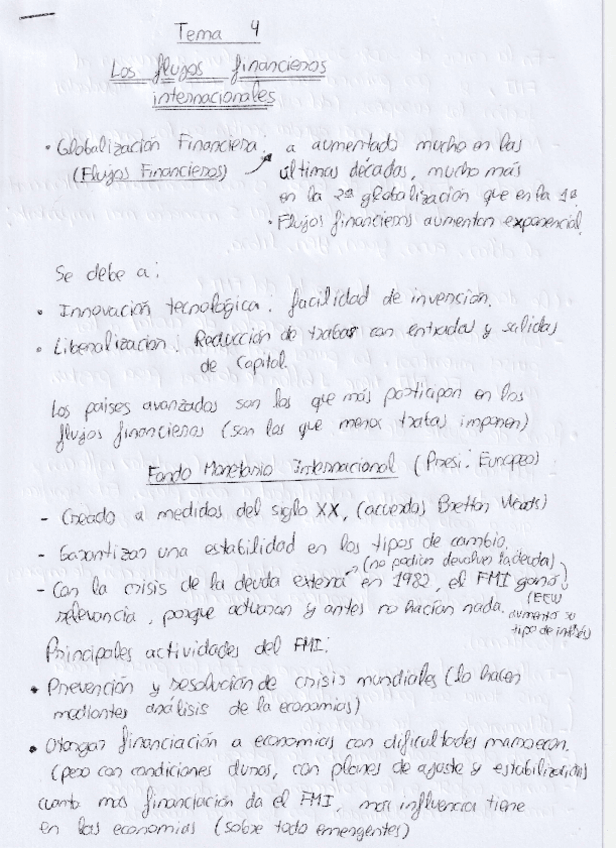 Tema 4
Los flujos financieros
internacionales
• Globalización Financiera: a aumentado mucho en las
(Flujos Financieros) últimas décadas, mucho más
en la 2ª globalización que en la 1ª
• Flujos financieros aumentan exponencial.
Se debe a:
• Innovación tecnológica: facilidad de invención.
• Liberalización: Reducción de trabas con entradas y salidas
de capital.
Los paises avanzados son los que más participan en los
flujos financieros (son los que menor tratas imponen)
Fondo Monetario Internacional (Presi: Europeo)
- Creado a medidos del siglo XX, (acuerdos Bretton Woods)
- Garantizar una estabilidad en los tipos de cambio.
(no podian devolver la deuda)
- Con la crisis de la deuda externa en 1982, el FMI ganó
relevancia, porque actuaron y antes no hacían nada. (EEUU
aumentó su
tipo de interés)
Principales actividades del FMI:
• Prevención y resolución de crisis mundiales (lo hacen
mediantes análisis de la economías)
• Otorgar financiación a economías con dificultades macroecon.
(pero con condiciones duras, con planes de ajuste y estabilización)
cuanto mas financiación da el FMI, mas influencia tiene
en las economías (sobre todo emergentes)